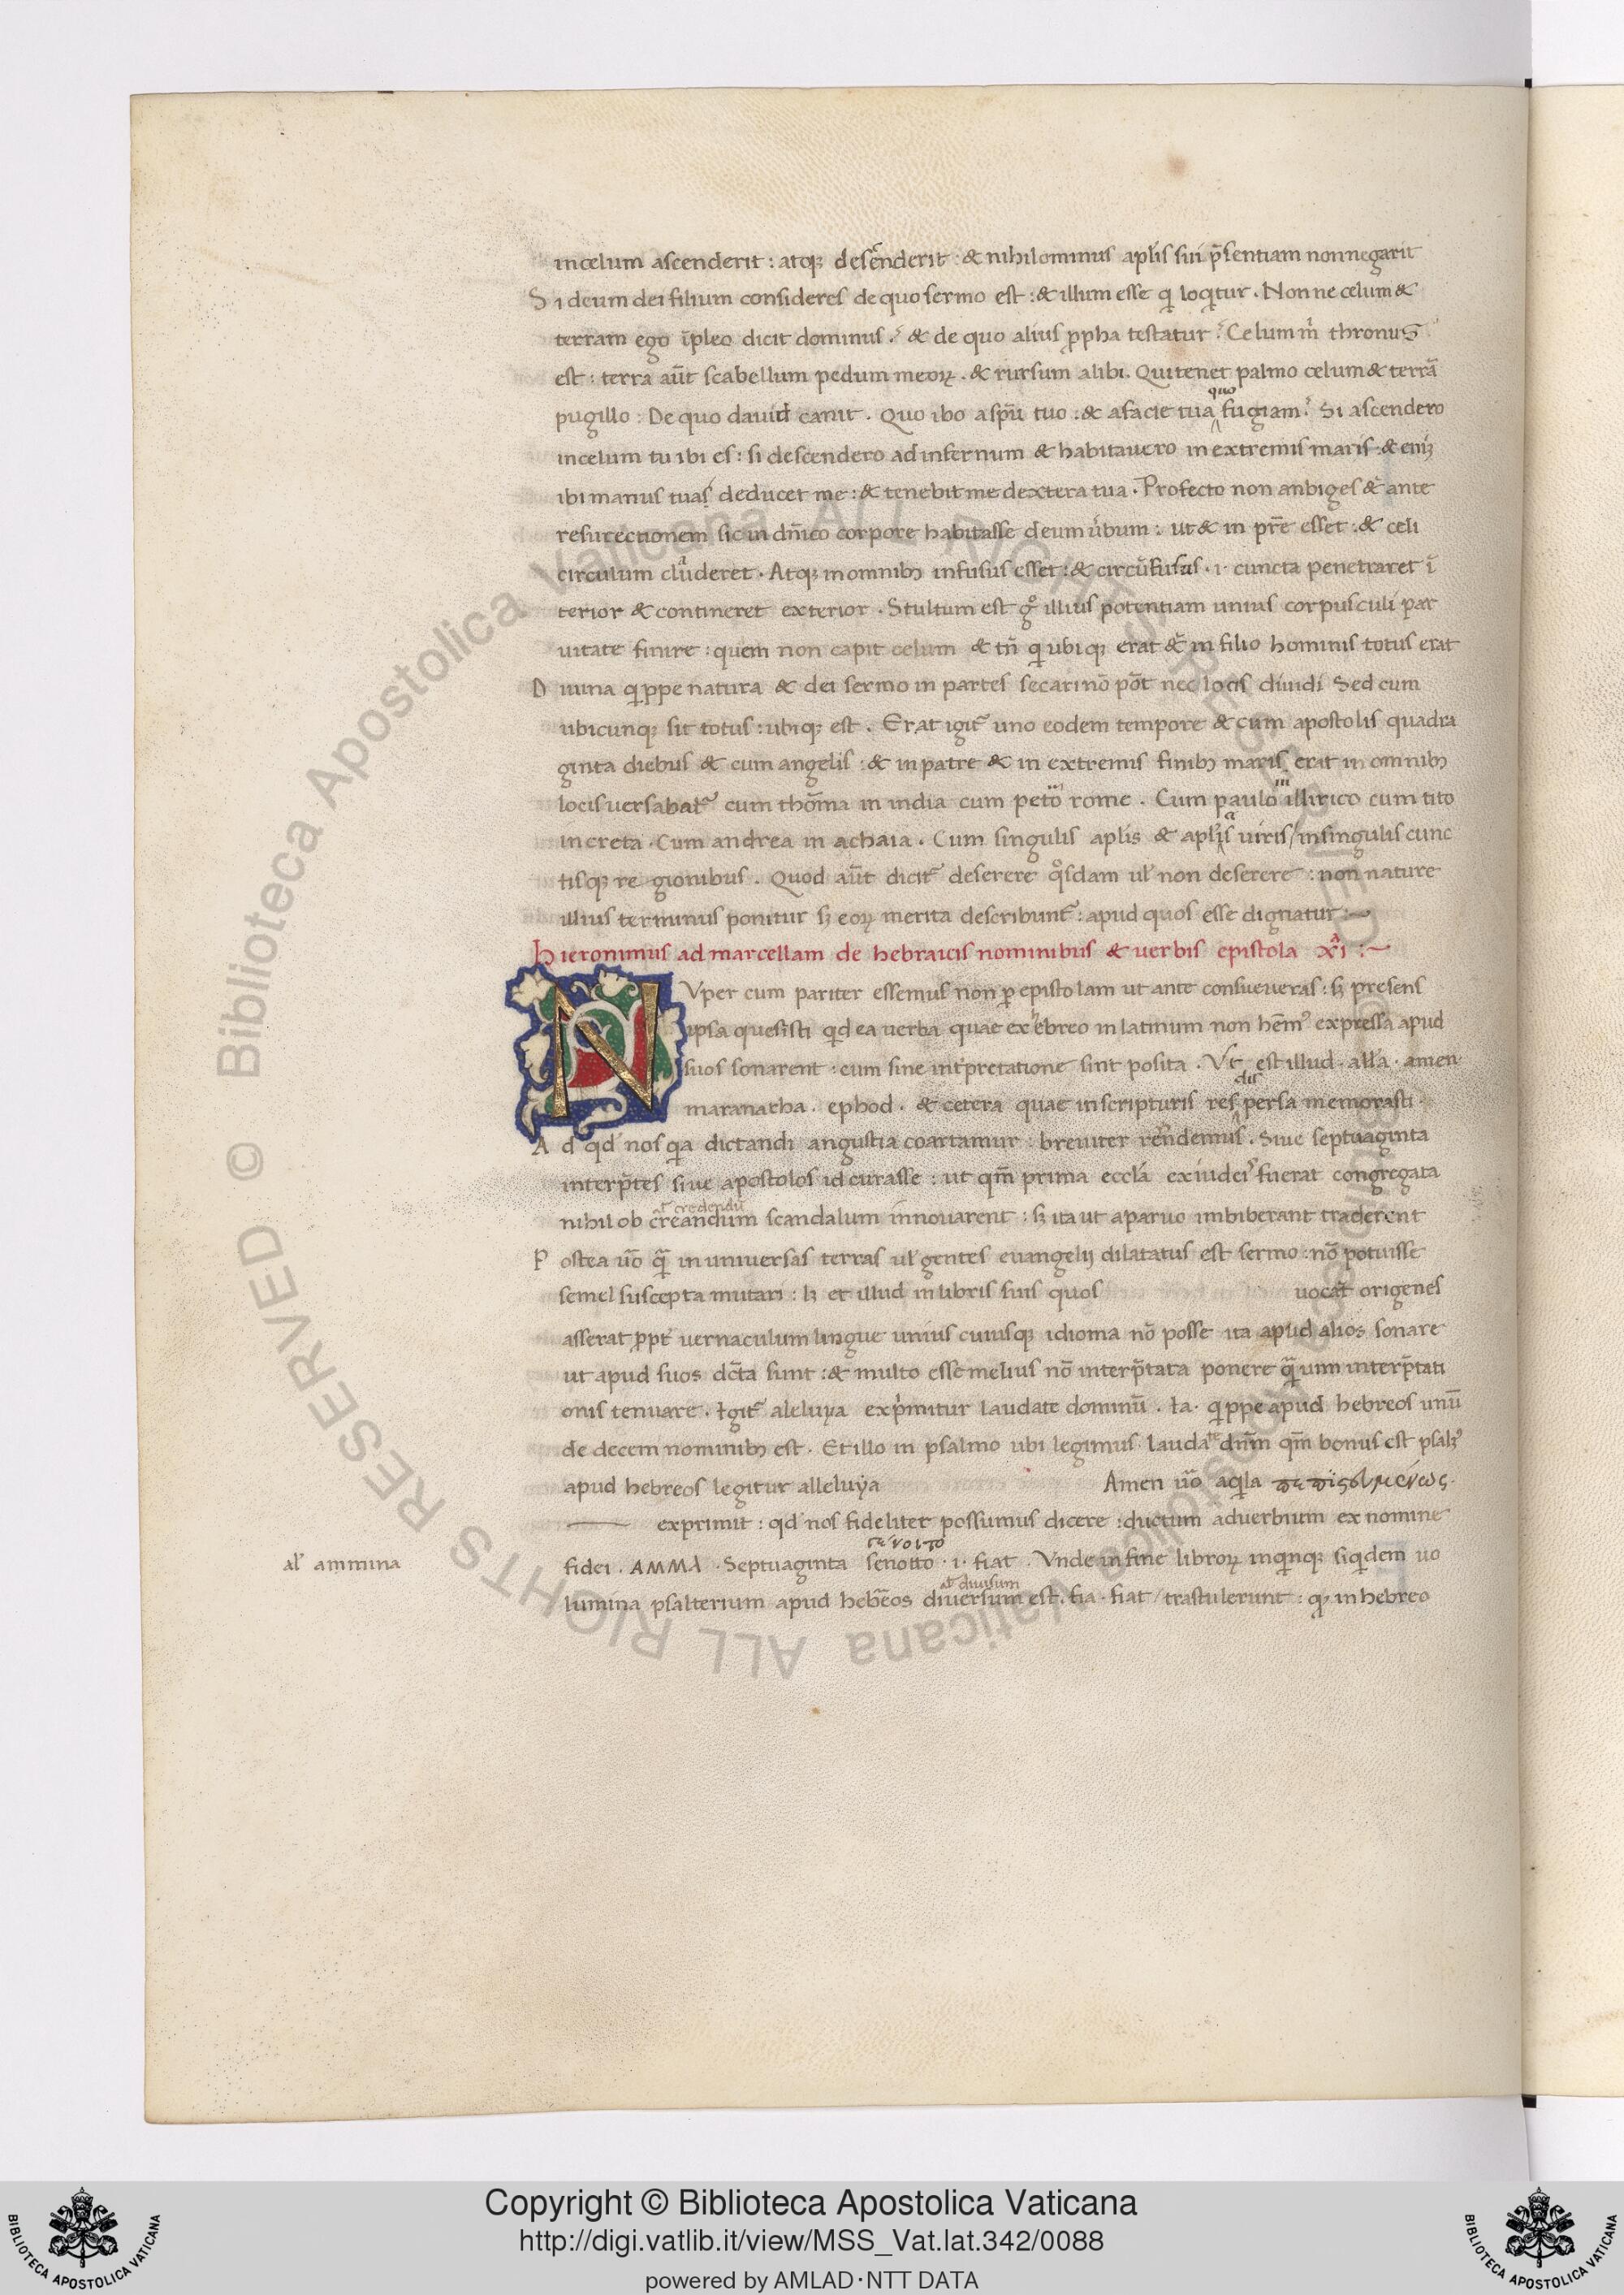 in celum ascenderit : atq; descenderit : & nihilominus apl̃is sui p̃sentiam non negarit
Si deum dei filium consideres de quo sermo est : & illum esse qi loqitur . Non ne celum &
terram ego ĩpleo dicit dominus ? & de quo alius ꝓpha testatur ? Celum m̃ thronus
est : terra aũt scabellum pedum meoꝝ . & rursum alibi . Qui tenet palmo celum & terrã
pugillo : De quo david canit . Quo ibo a spũ tuo : & a facie tua quo fugiam ? Si ascendero
in celum tu ibi es : si descendero ad infernum & habitavero in extremis maris :
ibi manus tuas deducet me : & tenebit me dextera tua . Profecto non anbiges & ante
resurectionem sic in dñico corpore habitasse deum ũbum : ut & in pr̃e esset : & celi
circulum cluderet . Atq; in omnibꝫ infusus esset : & circũfusus . i . cuncta penetraret ĩ
terior & contineret exterior . Stultum est gº illius potentiam unius corpusculi par
uitate finire : quem non capit celum & tñ qi ubiq; erat & in filio hominis totus erat
Diuina qippe natura & dei sermo in partes secari nõ põt nec locis diuidi Sed cum
ubicunq; sit totus : ubiq; est . Erat igit᷑ uno eodem tempore & cum apostolis quadra
ginta diebus & cum angelis : & in patre & in extremis finibꝫ maris erat in omnibꝫ
locis versabat᷑ cum thõma in india cum pet̃o rome . Cum paulo in illirico cum tito
in creta . Cum andrea in achaia . Cum singulis aplis & viris / in singulis cunc
tisq; re gionibus . Quod aũt dicit᷑ deserere qºsdam ul̃ non deserere : non nature
illius terminus ponitur sꝫ eoꝝ merita describunt᷑ : apud quos esse dignatur :~
Hieronimus ad marcellam de hebraicis nominibus & verbis epistola xi :~
NVper cum pariter essemus non ꝑ epistolam ut ante consueueras : sꝫ presens
ipsa quesisti qd ea verba quae ex ebreo in latinum non hẽmꝰ expressa apud
suos sonarent : cum sine int̃pretatione sint posita . Vt est illud . all̃a . amen .
maranatha . ephod . & cetera quae in scripturis res persa memorasti .
Ad qd nos qia dictandi angustia coartamur : breuiter rñdemus . Siue septuaginta
interp̃tes siue apostolos id curasse : ut qm̃ prima eccl̃a ex iudeiꝰ fuerat congregata
al̃ credendũ
nihil ob creandum scandalum innouarent : sꝫ ita ut a paruo imbiberant traderent
Postea ũo qã in universas terras ul̃ gentes euangelij dilatatus est sermo : nõ potuisse
semel suscepta mutari : lꝫ et illud in libris suis quos uocat origenes
asserat ꝓpt̃ vernaculum lingue unius cuiusq; idioma nõ posse ita apud alios sonare
ut apud suos dc̃ta sunt : & multo esse melius nõ interp̃tata ponere qã uim interp̃tati
onis tenuare . Igit᷑ aleluya exp̃mitur laudate dominũ . Ia . qippe apud hebreos unũ
de decem nominibꝫ est . Et illo in psalmo ubi legimus laudate dñm qm̃ bonus est
apud hebreos legitur alleluya Amen ũo aqila
exprimit : qd nos fideliter possumus dicere : ductum adverbium ex nomine
γένοιτο
al̃ ammina fidei . AMMA . Septuaginta senotto . i . fiat . Vnde in fine libroꝝ in qinq; siqidem uo
al̃ diuisum
lumina psalterium apud hebreos diuersum est . fia . fiat / trastulerunt : in hebreo
Copyright © Biblioteca Apostolica Vaticana
http://digi.vatlib.it/view/MSS_Vat.lat.342/0088
powered by AMLAD·NTT DATA
BIBLIOTECA APOSTOLICA VATICANA
BIBLIOTECA APOSTOLICA VATICANA
© Biblioteca Apostolica Vaticana ALL RIGHTS RESERVED © Biblioteca Apostolica Vaticana ALL RIGHTS RESERVED